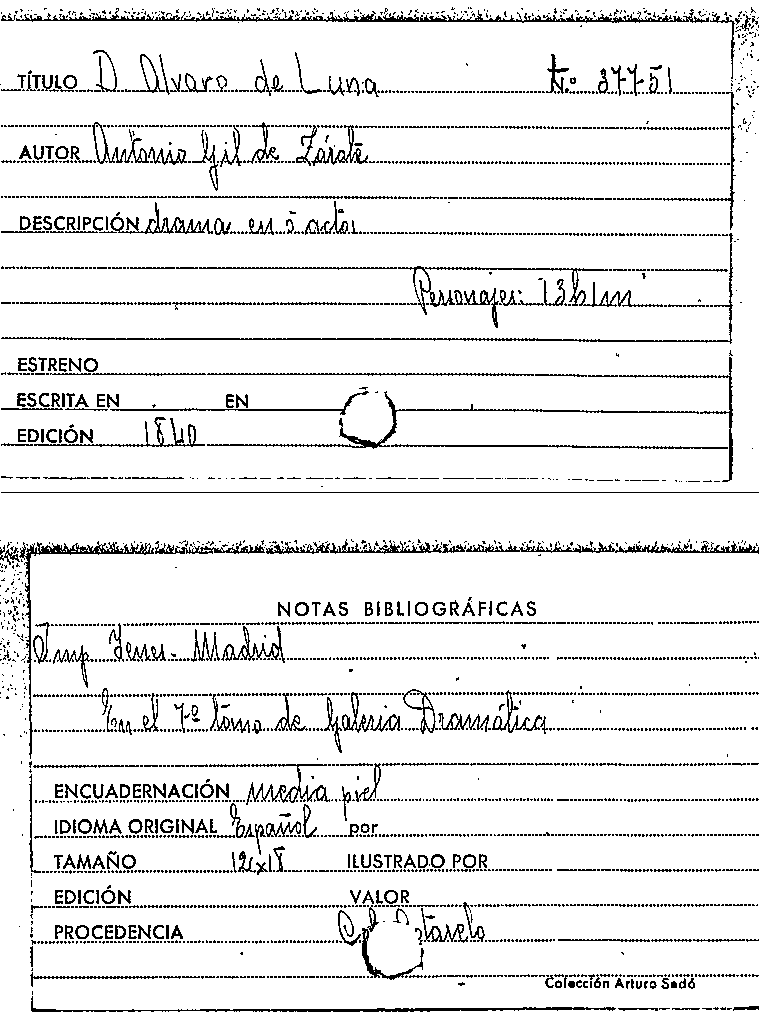 TÍTULO D Alvaro de Luna N.º 377-51
AUTOR Antonio Gil de Zárate
DESCRIPCIÓN drama en 5 actos
Personajes: 13h1m
ESTRENO
ESCRITA EN EN
EDICIÓN 1840
NOTAS BIBLIOGRÁFICAS
Imp. Yenes. Madrid
En el 7º tomo de Galeria Dramática
ENCUADERNACIÓN media piel
IDIOMA ORIGINAL Español por
TAMAÑO 12x18 ILUSTRADO POR
EDICIÓN VALOR
PROCEDENCIA
Colección Arturo Sedó